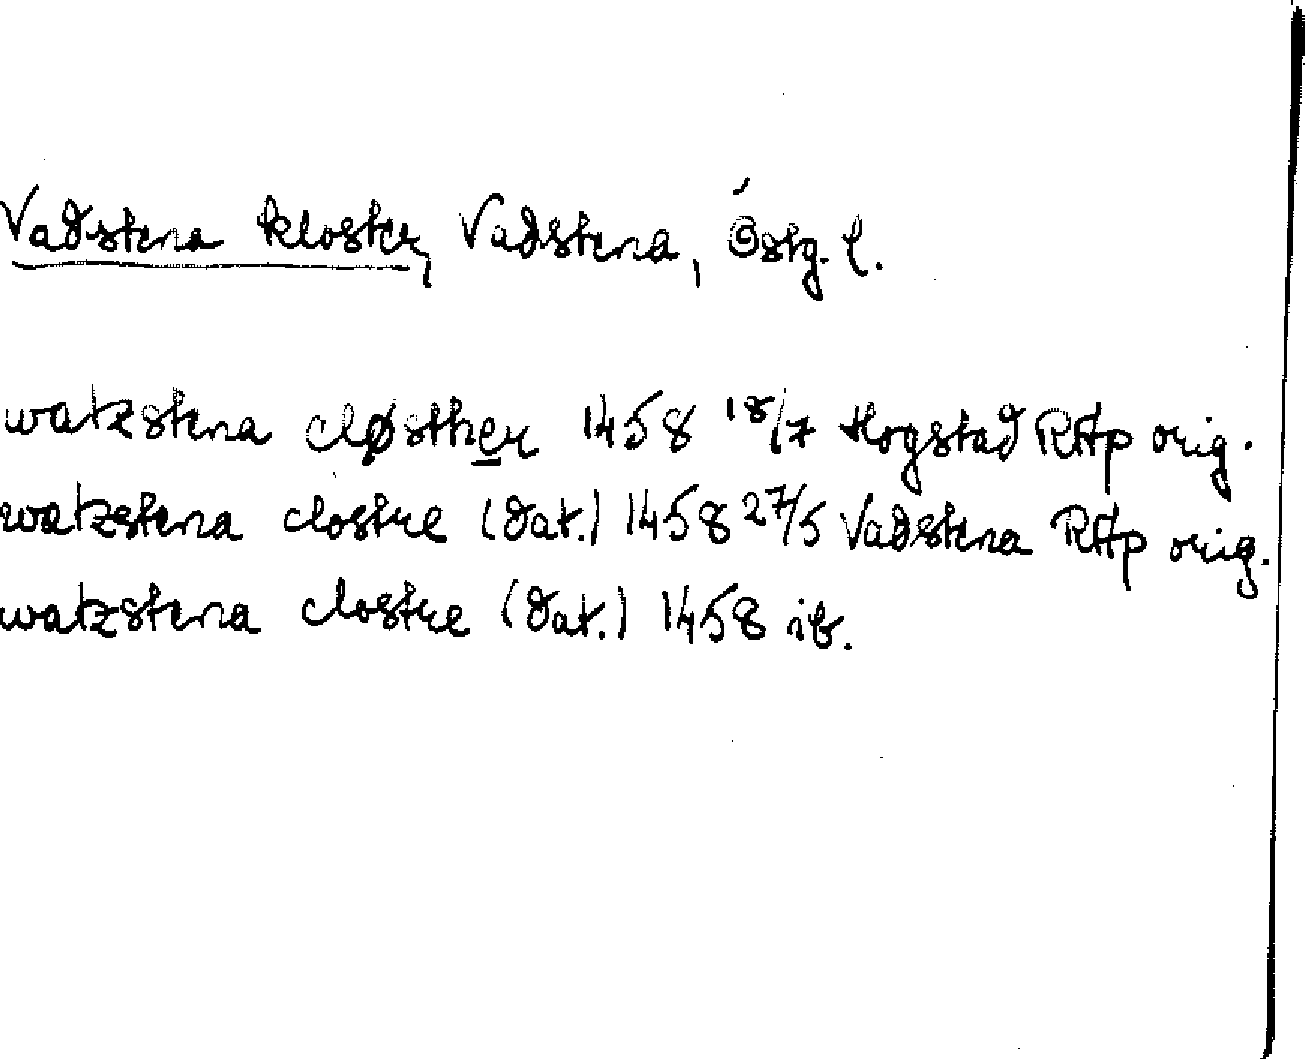 Vadstena kloster, Vadstena, Östg. l.
watzstena cløsther 1458 18/7 Hogstad RAp orig.
watzstena clostre (dat.) 1458 27/5 Vadstena RAp orig.
watzstena clostre (dat.) 1458 ib.